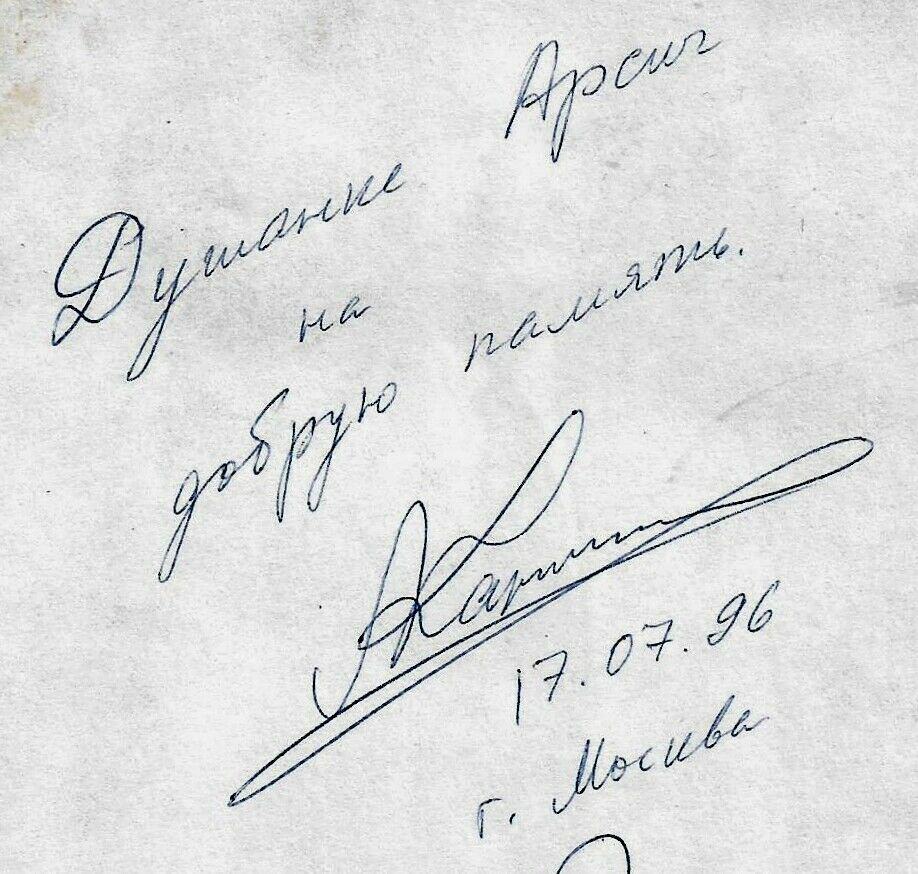 Душанке Арсич
на
добрую память.
17.07.96
г. Москва